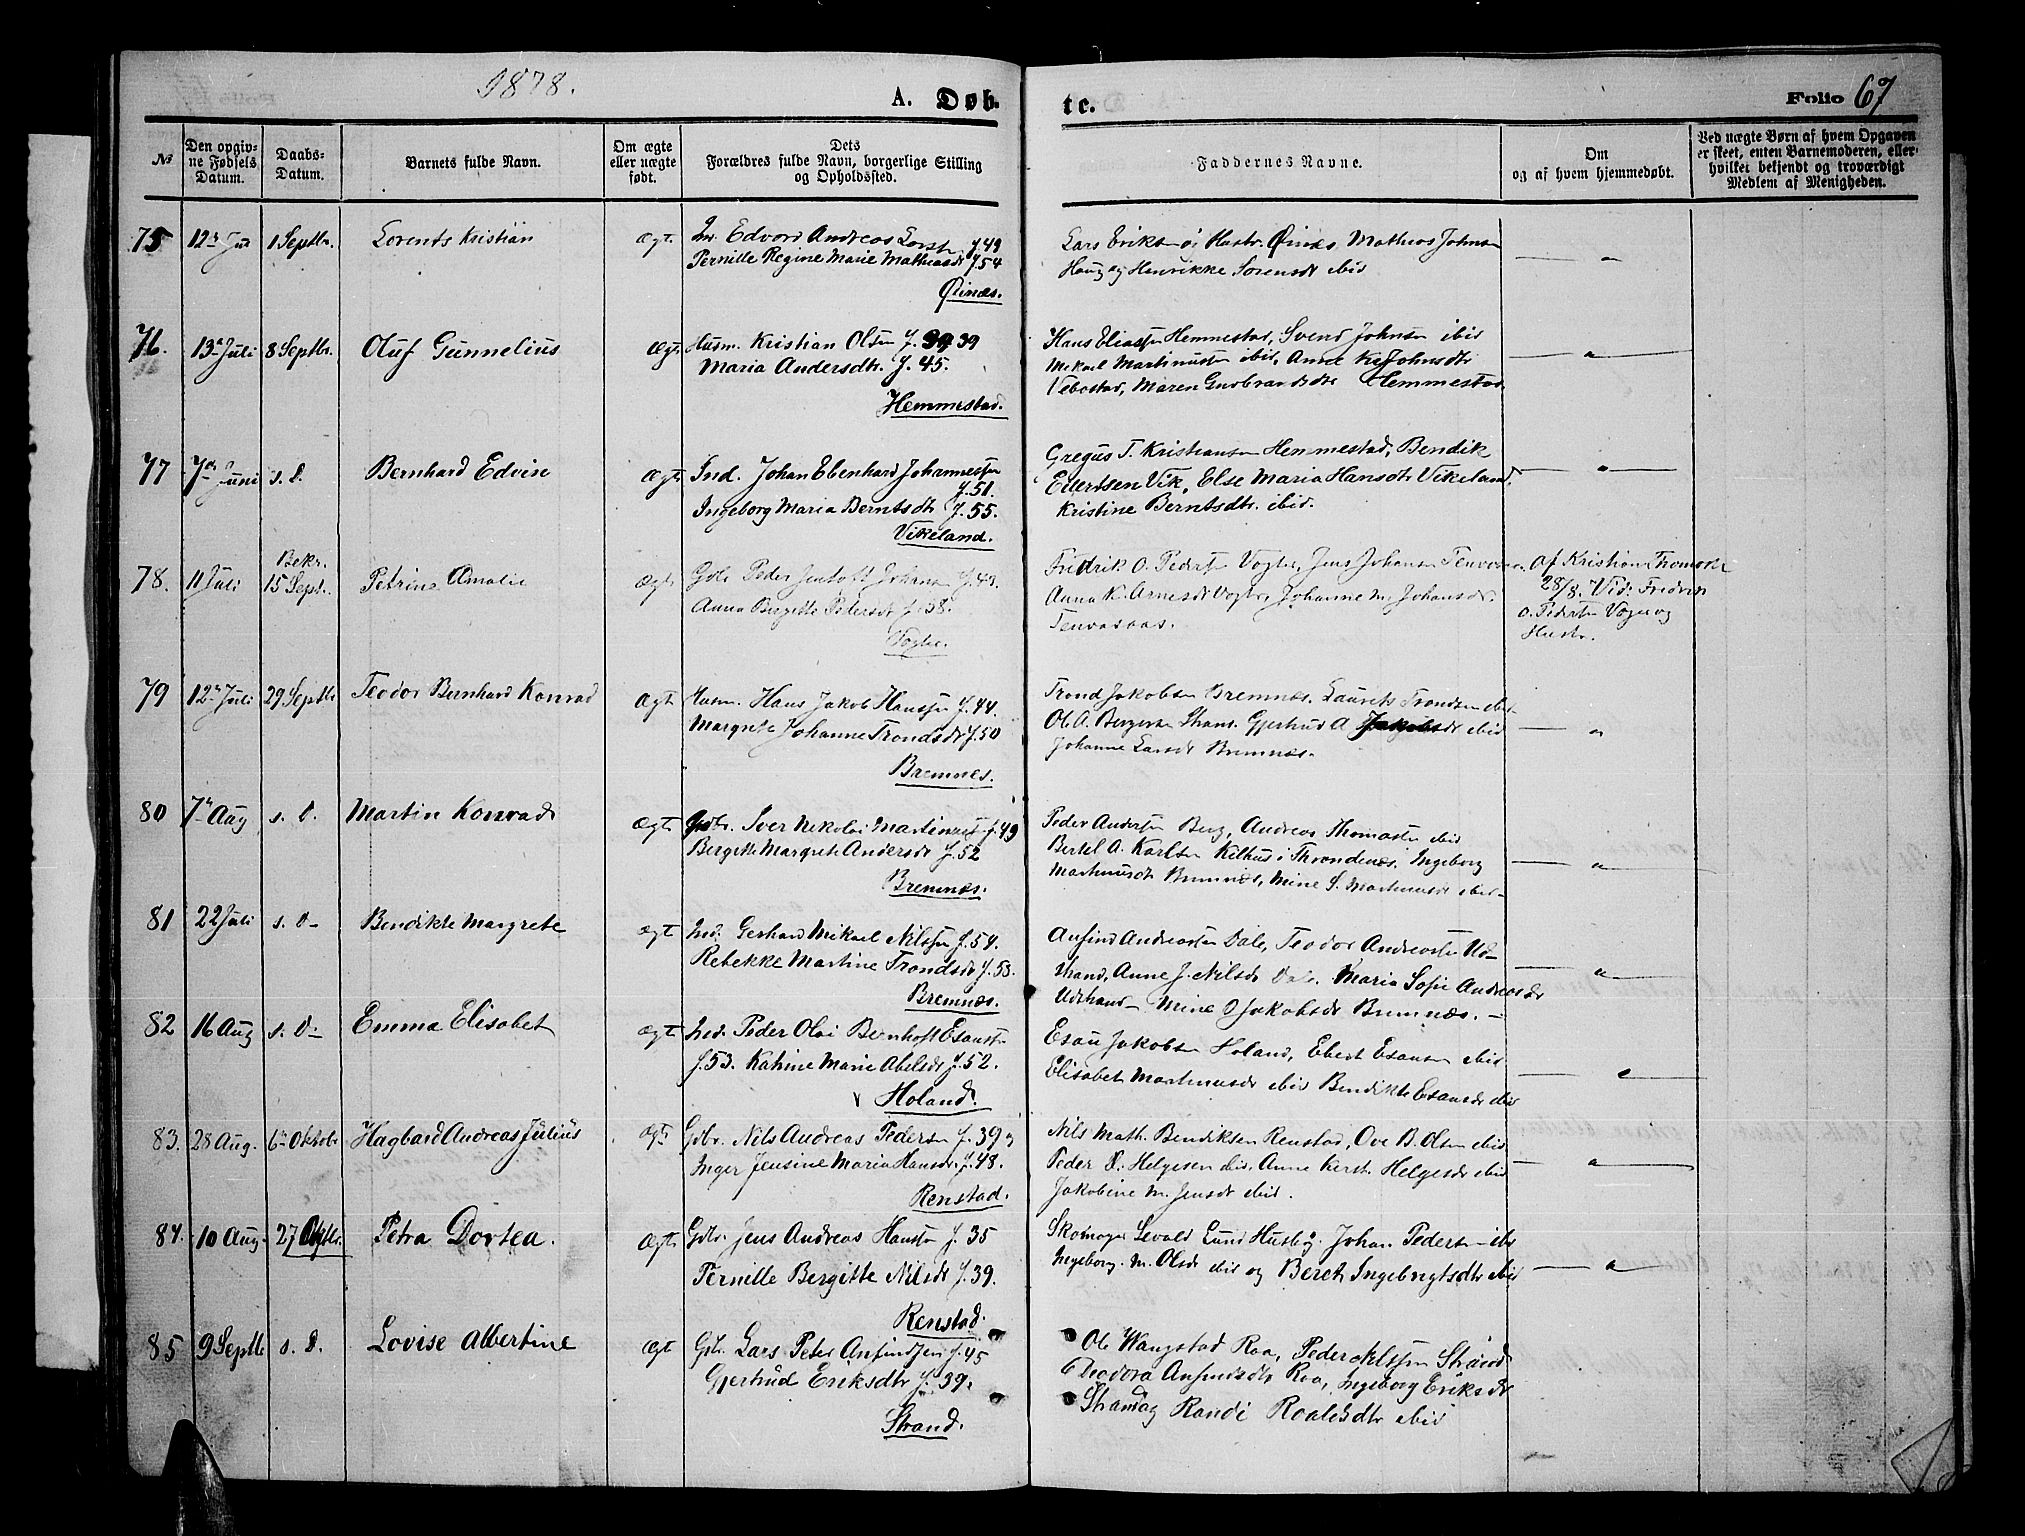 1878.
A. Døb
te.
Folio 67
No
Den opgiv-
ne Fødsels
Datum.
Daabs-
Datum.
Barnets fulde Navn.
Om ægte
eller uægte
født.
Dets
Forældres fulde Navn, borgerlige Stilling
og Opholdssted.
Faddernes Navne.
Om
og af hvem hjemmedøbt.
Ved uægte Børn af hvem Opgaven
er skeet, enten Barnemoderen, eller
hvilket bekjendt og troværdigt
Medlem af Menigheden.
75 12 1 Septbr. Lorents Kristian ægt. Edvard Andreas f. 49
Pernille Regine Marie Mathiasdt f. 54
Øinæs.
Lars Hustr. Øinæs Mathias Johns
Haug og Henrikke Sørensdt ibid
76. 13 Juli 8 Septbr. Oluf Gunnelius ægt. Husm. Kristian Olsen f. 39
Maria Andersdtr. f. 45.
Hemmestad.
Hans Eliassen Hemmestad, Svend Johnsen ibid
Mikael Martinussen ibid, Anne K. Johnsdtr
Vebostad, Maren Gudbrandsdtr Hemmestad
77 7 Juni s. D. Bernhard Edvin ægt. Ind. Johan Ebenhard Johannessen
f. 51.
Ingeborg Maria Berntsdtr f. 55.
Vikeland.
Gregus T. Kristiansen Hemmestad, Bendik
Eilertsen Vik, Else Maria Hansdtr Vikeland
Kristine Berntsdtr. ibid.
78. 11 Juli Bekr.
15 Septr. Petrine Amalie ægt. Gbr Peder Jentoft Johnsen f. 49.
Anna Birgitte Petersdt f. 58.
Fredrik O. Peders Jens Johansen
Anna K. Arnesdt Johanne M. Johansdr.
af Kristian
28/8. Vid: Fredrik
O. Peders og
Hustr.
79 12 Juli 29 Septbr Teodor Bernhard Konrad ægt Husm. Hans Jakob Hanssen f. 44.
Margrete Johanne Trondsdt f. 50
Bremnes.
Trond Jakobsen Bremnes. Laurits Trondsen ibid
Ol. A. Bergersen Strand. Gjertrud A Jakobsdt ibid
Johanne Larsdt Bremnes.
80 7 Aug s. D. Martin Konrad ægt. Gdbr. Iver Nikolai Martinussen f. 49
Bergitte Margrete Andersdt f. 52
Bremnes.
Peder Andersen Berg, Andreas Thomassen ibid
Bertel A. Karlsen Kilhus i Throndenes. Ingeborg
Martinusdt Bremnes, Mine S. Martinusdt ibid
81 22 Juli s. D Bendikte Margrete ægt Ind. Gerhard Mikael Nilssen f. 54.
Rebekke Martine Trondsdt f. 58.
Bremnes.
Anfind Andreassen Dale, Teodor Andreassen Ud-
strand, Anne J. Nilsdt Dale. Maria Sofie Andreasdr
Udstrand Mine Jakobsdt Bremnes.
82 16 Aug s. D Emma Elisabet ægt Ind. Peder Olai Bernhoft Esausen
f. 53. Katrine Marie Abelsdt f. 52.
Holand.
Esau Jakobsen Holand, Ebert Esausen ibid
Elisabet Martinusdt ibid Bendikte Esausdt ibid
83. 28 Aug. 6 Oktobr Hagbard Andreas Julius ægt Gdbr. Nils Andreas Pedersen f. 39
Inger Jensine Maria Hansdt f. 48.
Renstad.
Nils Math. Bendiksen Renstad, Ove B. Olsen ibid
Peder D. Helgesen ibid. Anne Kerst. Helgesdt ibid
Jakobine M. Jensdt ibid.
84. 10 Aug. 27 Oktbr. Petra Dortea. ægt Gdbr. Jens Andreas Hansen f. 35
Pernille Bergitte Nilsdt f. 39.
Renstad.
Skomager Sevald Lund Husby. Johan Pedersen ibd
Ingeborg. M. Olsdt ibid og Beret Ingebrigtsdtr ibid
85 9 Septbr s. D. Lovise Albertine ægt Gbr. Lars Peter Anfindsen f. 45
Gjertrud Eriksdtr f. 39.
Strand.
Ole Wangstad Roa, Peder Strand
Teodora Anfindsdtr Roa, Ingeborg Eriksdr
Strand og Randi Roaldsdtr ibid